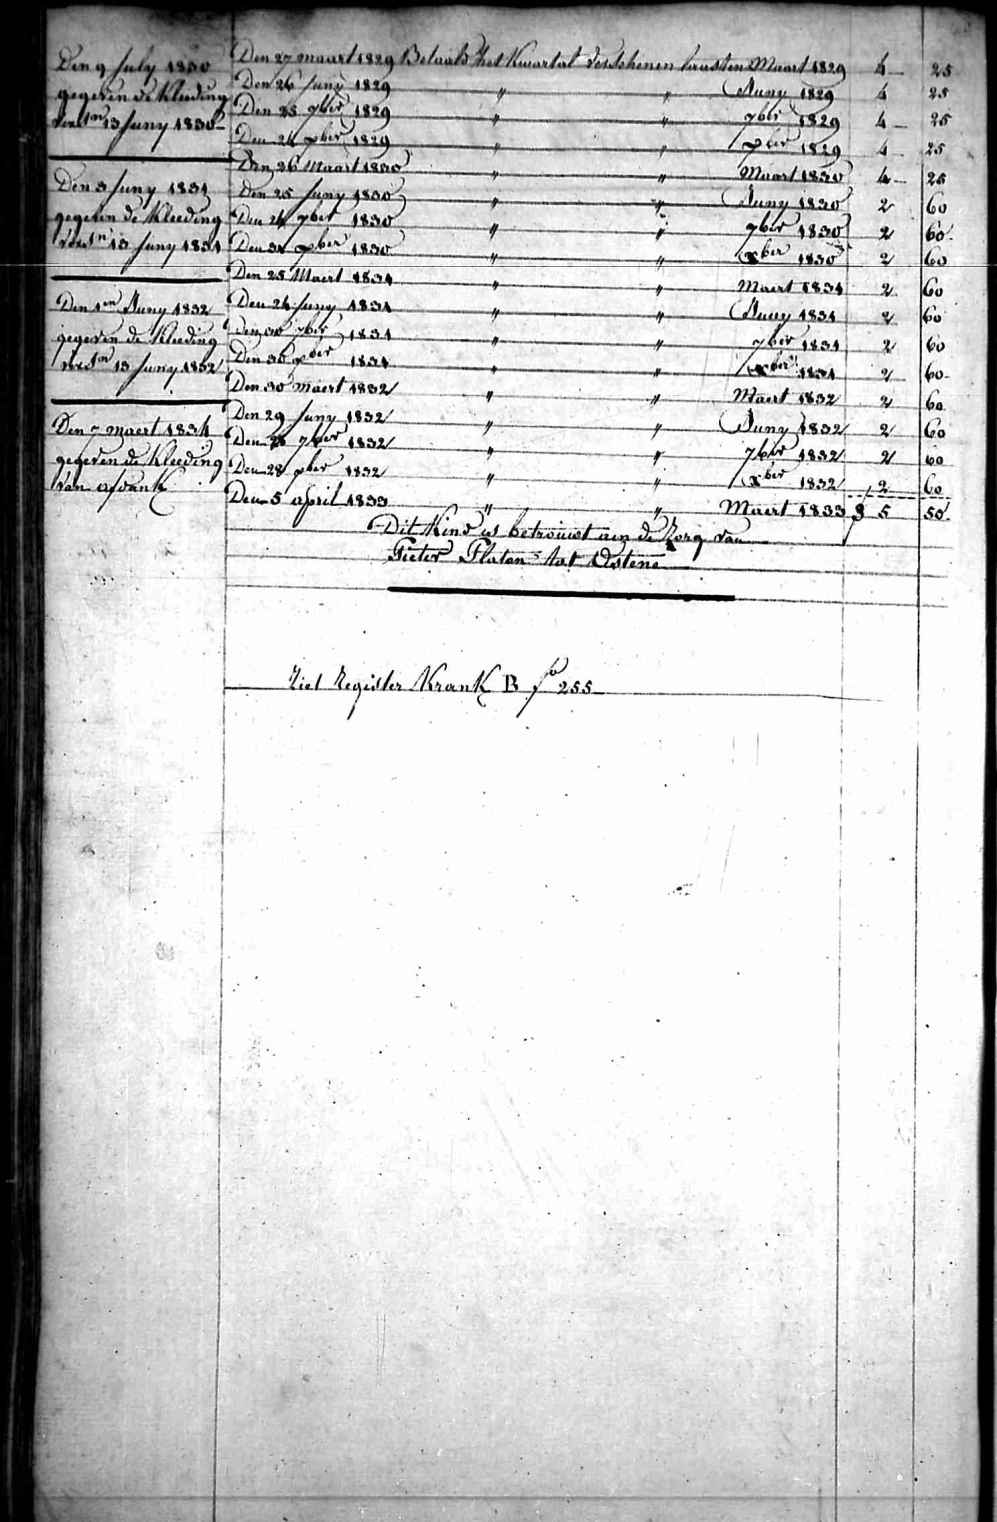 Den 9 July 1830
gegeven de Kleeding
van 13 Juny 1830
Den 3 Juny 1831
gegeven de Kleeding
13 Juny 1831
Den 1en Juny 1832
gegeven de Kleeding
13 Juny 1832
Den 7 maert 1834
gegeven de Kleeding
van afdank
Den 27 maart 1829 Betaald het Kwartal verschenen laasten Maart 1829 4 — 25
Den 26 Juny 1829 " " Juny 1829 4 25
Den 25 7ber 1829 " " 7ber 1829 4 — 25
Den 24 xber 1829 " " xber 1829 4 25
Den 26 Maart 1830 " " Maart 1830 4 — 25
Den 25 Juny 1830 " " Juny 1830 2 60
Den 24 7ber 1830 " " 7ber 1830 2 60
Den 31 xber 1830 " " xber 1830 2 60
Den 25 Maert 1831 " " Maert 1831 2 60
Den 24 Juny 1831 " " Juny 1831 2 60
Den 30 7ber 1831 " " 7ber 1831 2 60
Den 30 xber 1831 " " xber 1831 2 60
Den 30 maert 1832 " " Maert 1832 2 60
Den 29 Juny 1832 " " Juny 1832 2 60
Den 7ber 1832 " " 7ber 1832 2 60
Den 28 xber 1832 " " xber 1832 2 60
Den 5 april 1833 " " Maert 1833 5 50
Dit Kind is betrouwt aen de Zorg van
Pieter Platon tot Astene
Ziet Register Krank B fo 255